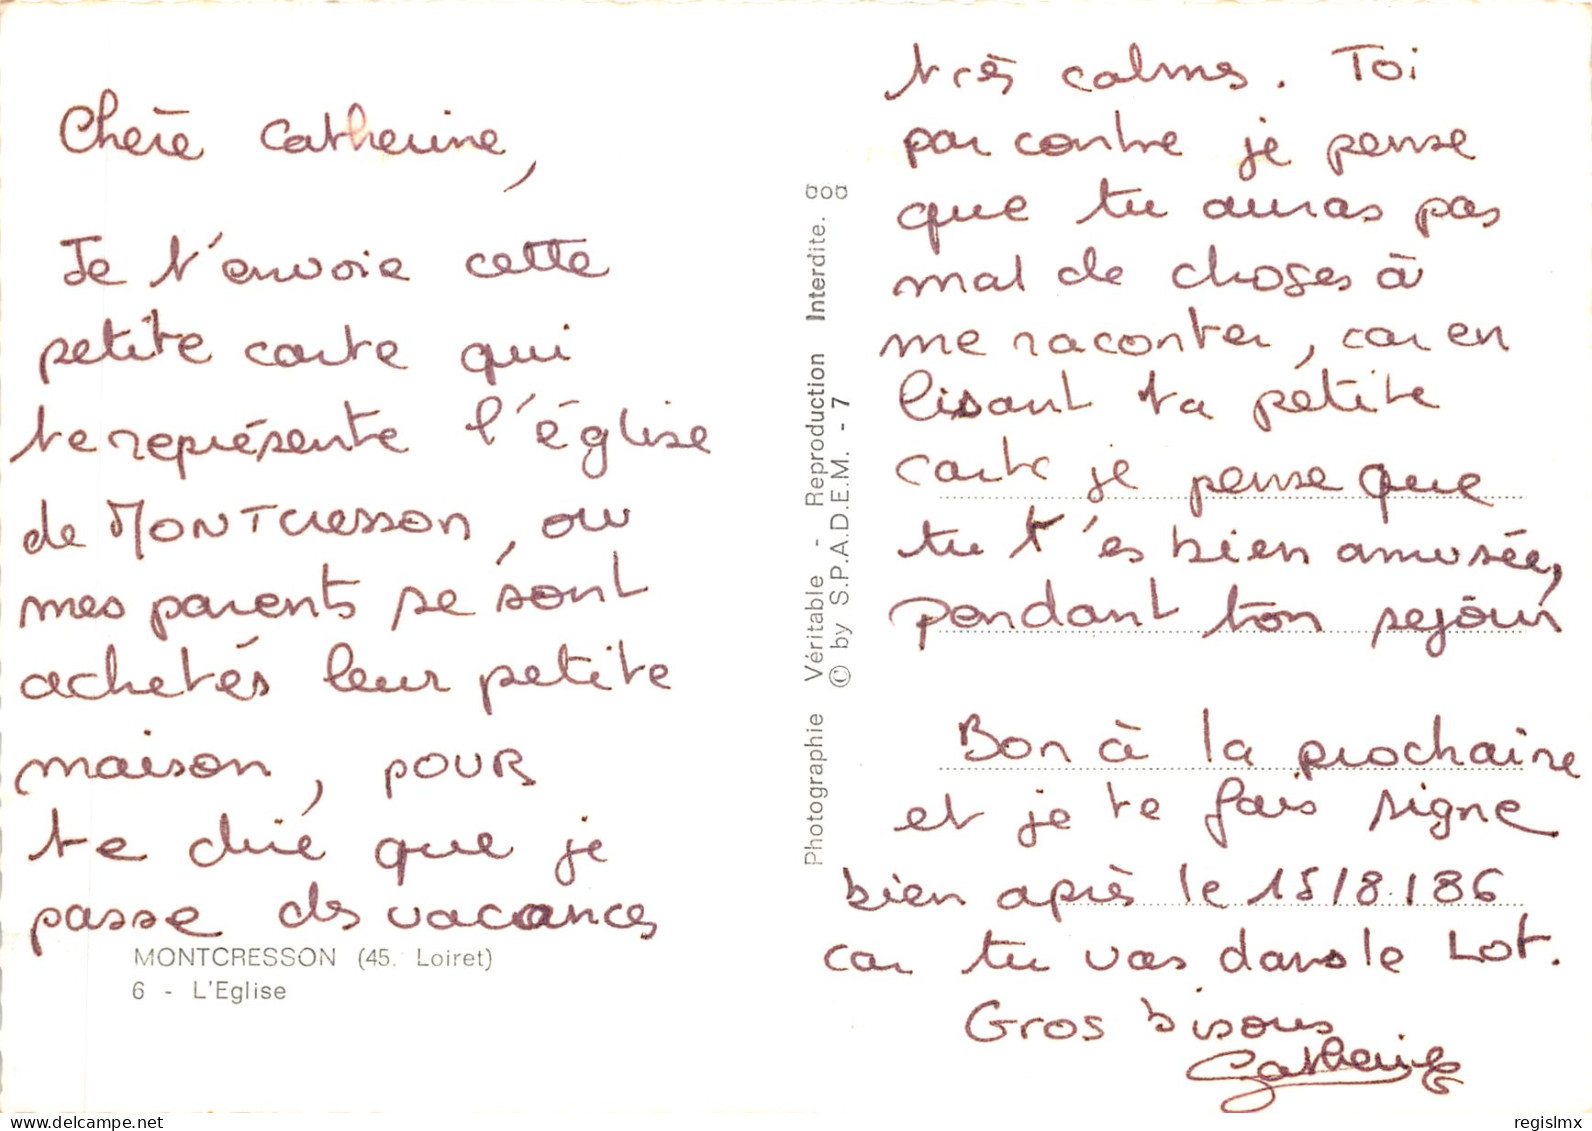 Chère Catherine,
Je t'envoie cette
petite carte qui
te représente l'église
de MONTCRESSON, ou
mes parents se sont
achetés leur petite
maison, pour
te dire que je
passe des vacances
MONTCRESSON (45. Loiret)
6 - L'Eglise
Photographie Véritable - Reproduction Interdite.
© by S.P.A.D.E.M. - 7
très calmes. Toi
par contre je pense
que tu auras pas
mal de choses à
me raconter, car en
lisant ta petite
carte je pense que
tu t'es bien amusée,
pendant ton sejour
Bon à la prochaine
et je te fais signe
bien après le 15/8/86
car tu vas dans le Lot.
Gros bisous
Catherine
regislmx